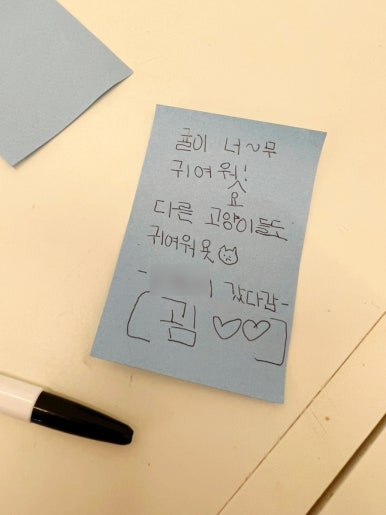 귤이 너~무
귀여웟!
요
다른 고양이들도
귀여워욧
- 갔다감-
( 굄 ♡♡ )